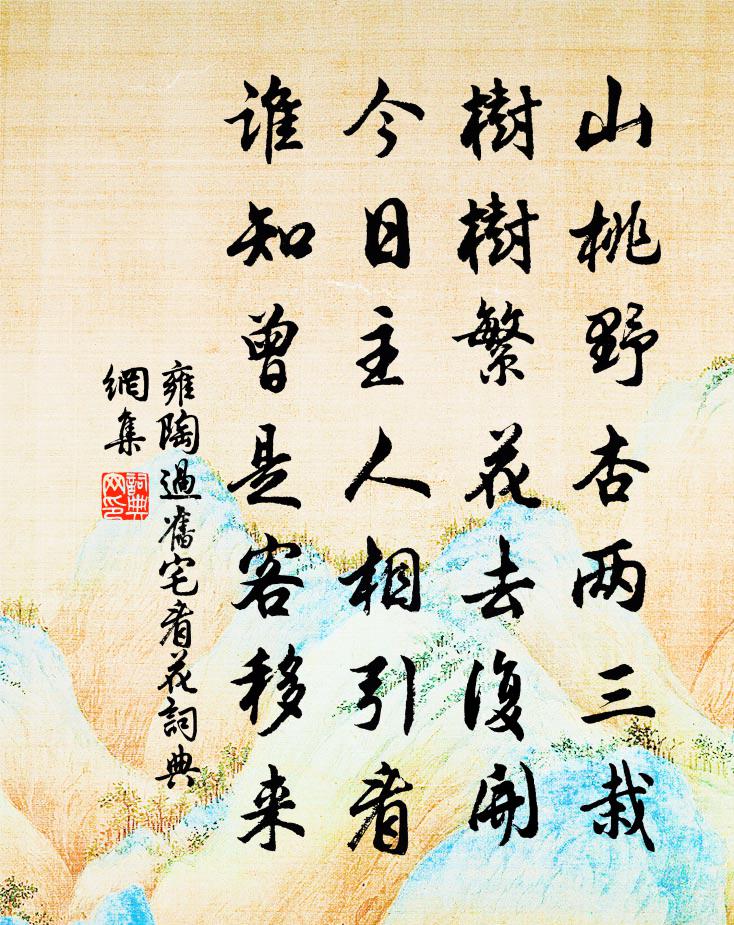 山桃野杏两三栽
樹樹繁花去復開
今日主人相引看
谁知曾是客移来
雍陶過舊宅看花詞典
網集
詞典
网印